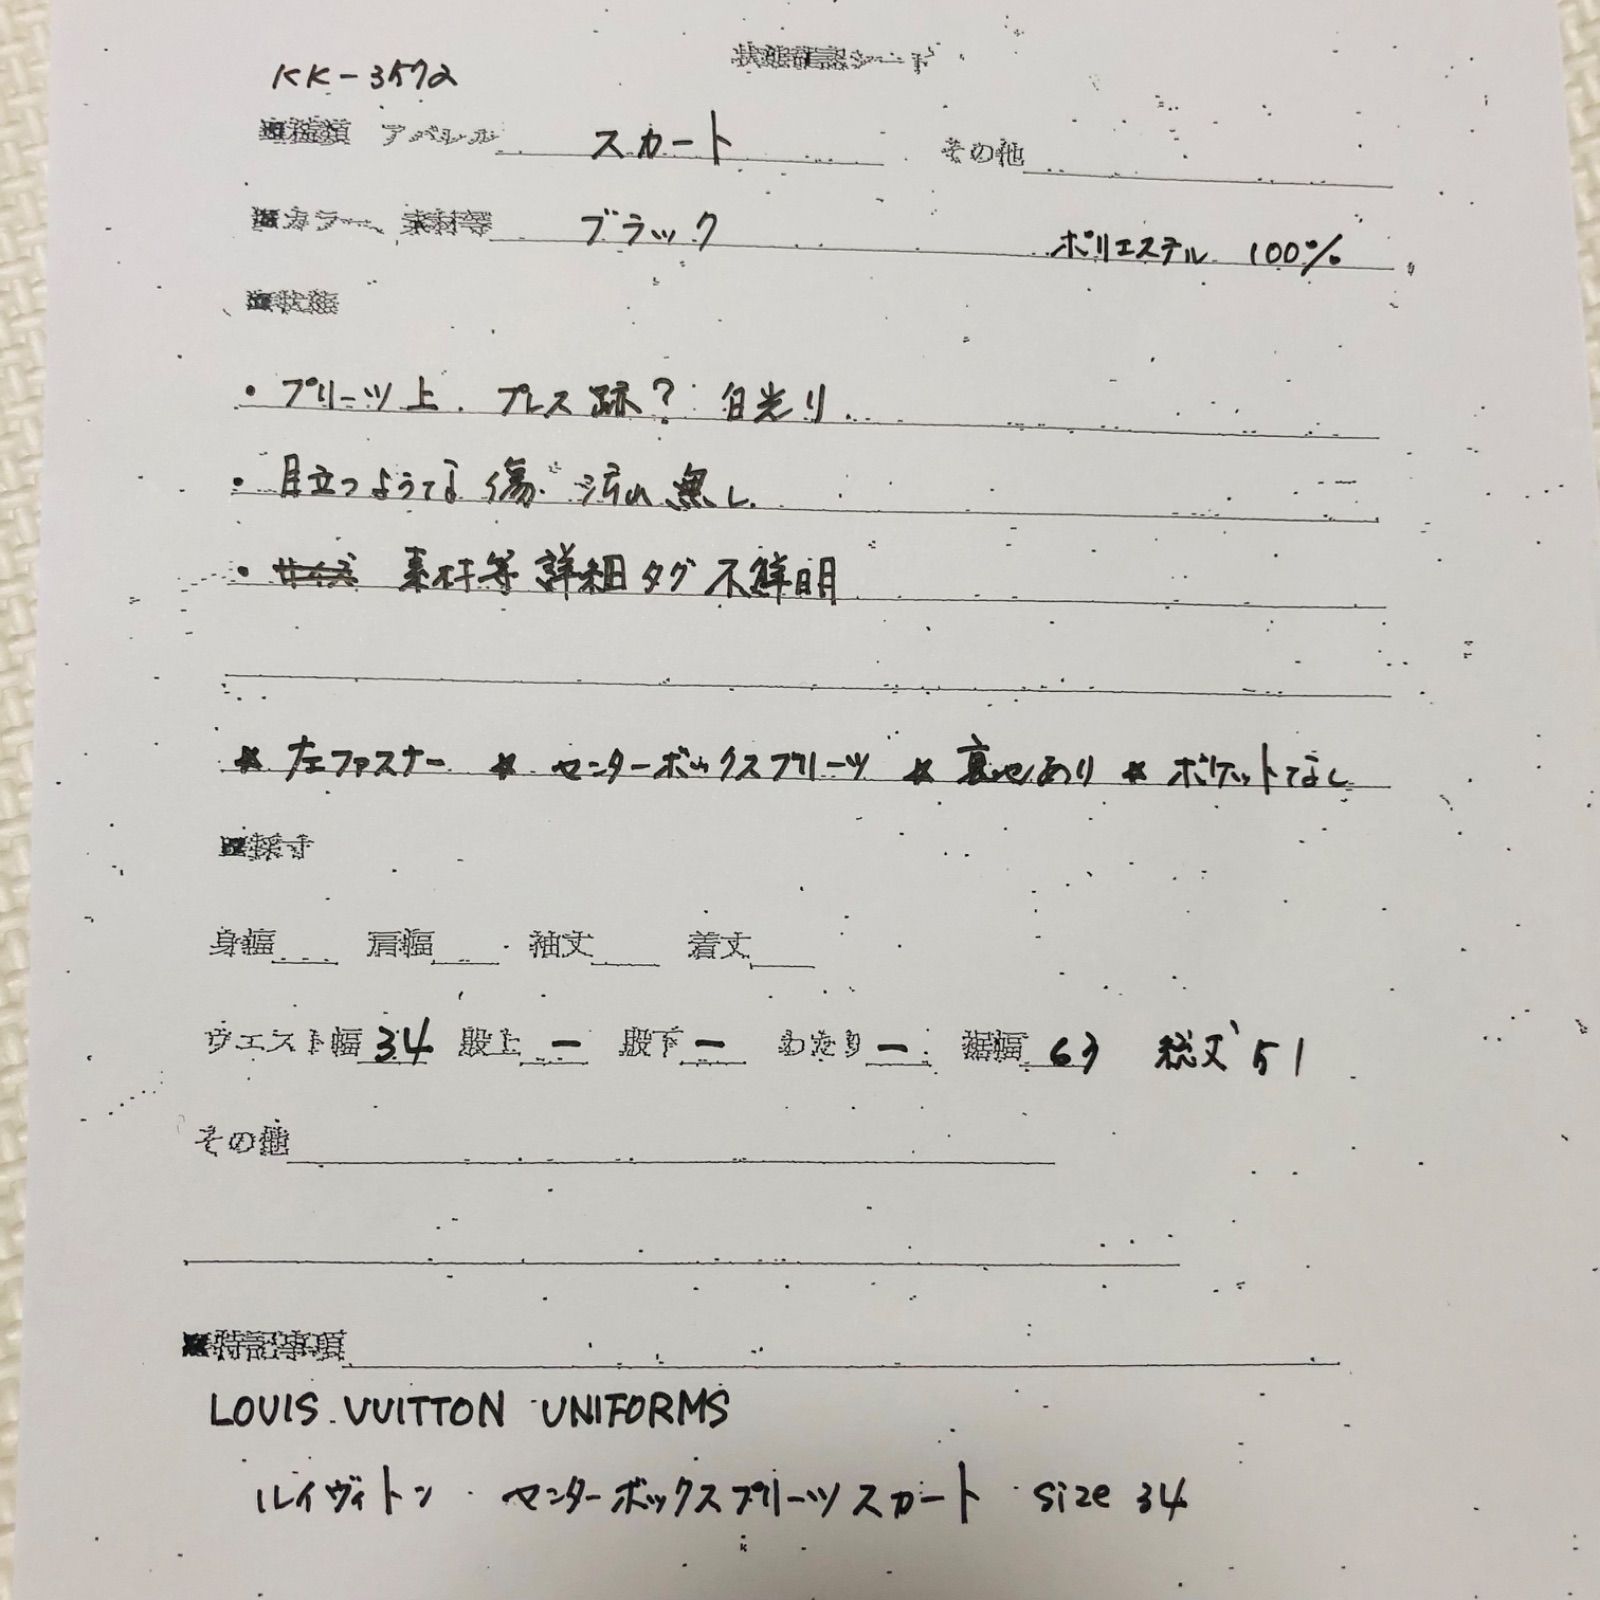 状態確認シート
KK-3572
■種類 アパレル スカート その他
■カラー、素材等 ブラック ポリエステル 100%
■状態
・プリーツ上、プレス跡? 白光り
・目立つような傷、汚れ無し
・素材等詳細タグ不鮮明
★左ファスナー ★センターボックスプリーツ ★裏地あり ★ポケットなし
■採寸
身幅 肩幅 袖丈 着丈
ウエスト幅 34 股上 ー 股下 ー わたり ー 裾幅 63 総丈 51
その他
■特記事項
LOUIS VUITTON UNIFORMS
ルイヴィトン センターボックスプリーツスカート size 34